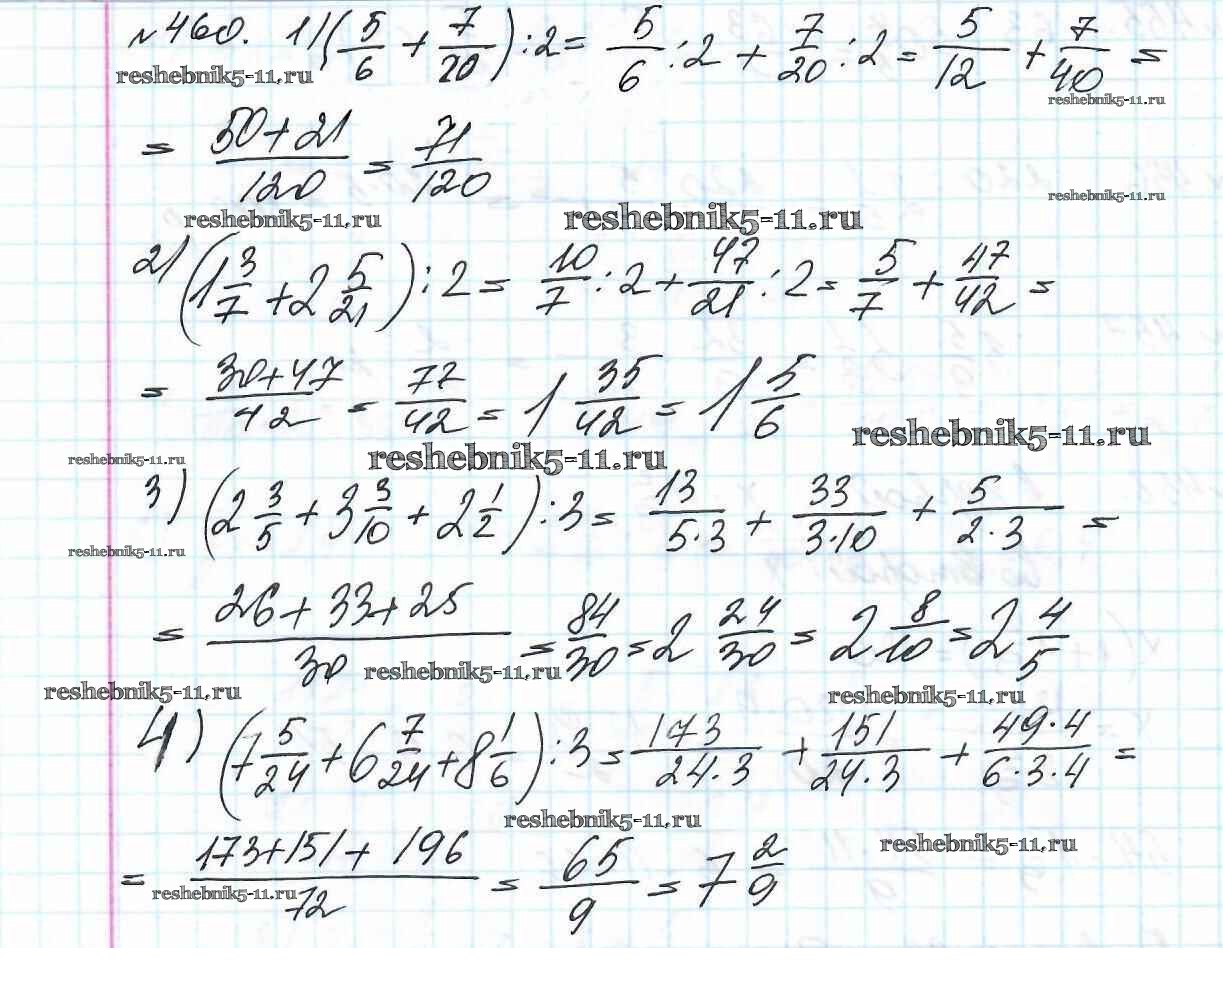 №460. 1) (5/6 + 7/20) : 2 = 5/6 : 2 + 7/20 : 2 = 5/12 + 7/40 =
reshebnik5-11.ru
reshebnik5-11.ru
= (50+21)/120 = 71/120
reshebnik5-11.ru
reshebnik5-11.ru reshebnik5-11.ru
2) (1 3/7 + 2 5/21) : 2 = 10/7 : 2 + 47/21 : 2 = 5/7 + 47/42 =
= (30+47)/42 = 77/42 = 1 35/42 = 1 5/6
reshebnik5-11.ru
reshebnik5-11.ru reshebnik5-11.ru
3) (2 3/5 + 3 3/10 + 2 1/2) : 3 = 13/(5·3) + 33/(3·10) + 5/(2·3) =
reshebnik5-11.ru
= (26+33+25)/30 = 84/30 = 2 24/30 = 2 8/10 = 2 4/5
reshebnik5-11.ru
reshebnik5-11.ru reshebnik5-11.ru
4) (7 5/24 + 6 7/24 + 8 1/6) : 3 = 173/(24·3) + 151/(24·3) + (49·4)/(6·3·4) =
reshebnik5-11.ru
reshebnik5-11.ru
= (173+151+196)/72 = 65/9 = 7 2/9
reshebnik5-11.ru